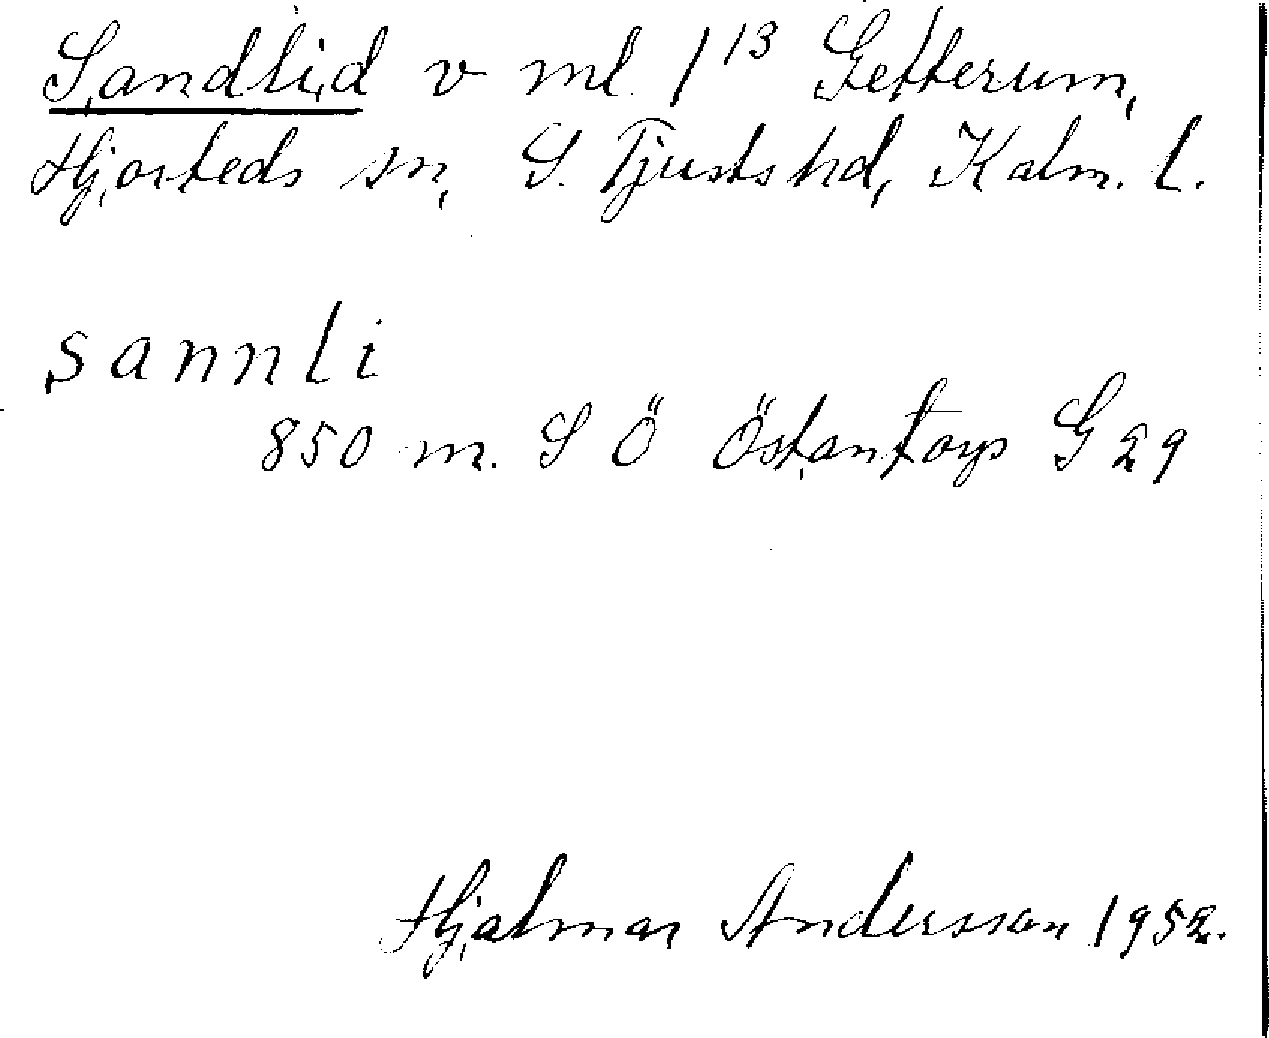 Sandlid v ml 1¹³ Getterum,
Hjorteds sn, S. Tjusts hd, Kalm. l.
sannli
850 m. S Ö Östantorp G 29
Hjalmar Andersson 1952.